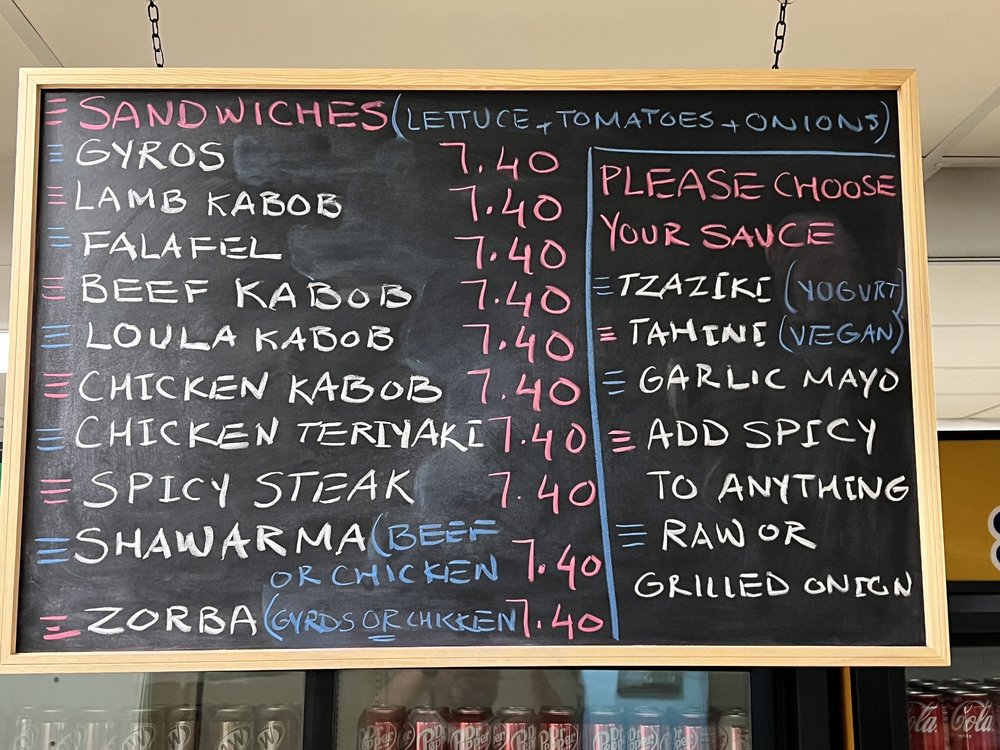 SANDWICHES (LETTUCE + TOMATOES + ONIONS)
GYROS 7.40
LAMB KABOB 7.40
FALAFEL 7.40
BEEF KABOB 7.40
LOULA KABOB 7.40
CHICKEN KABOB 7.40
CHICKEN TERIYAKI 7.40
SPICY STEAK 7.40
SHAWARMA (BEEF
OR CHICKEN 7.40
ZORBA (GYROS OR CHICKEN 7.40
PLEASE CHOOSE
YOUR SAUCE
TZAZIKI (YOGURT)
TAHINI (VEGAN)
GARLIC MAYO
ADD SPICY
TO ANYTHING
RAW OR
GRILLED ONION
Dr Pepper
Cola
Cola